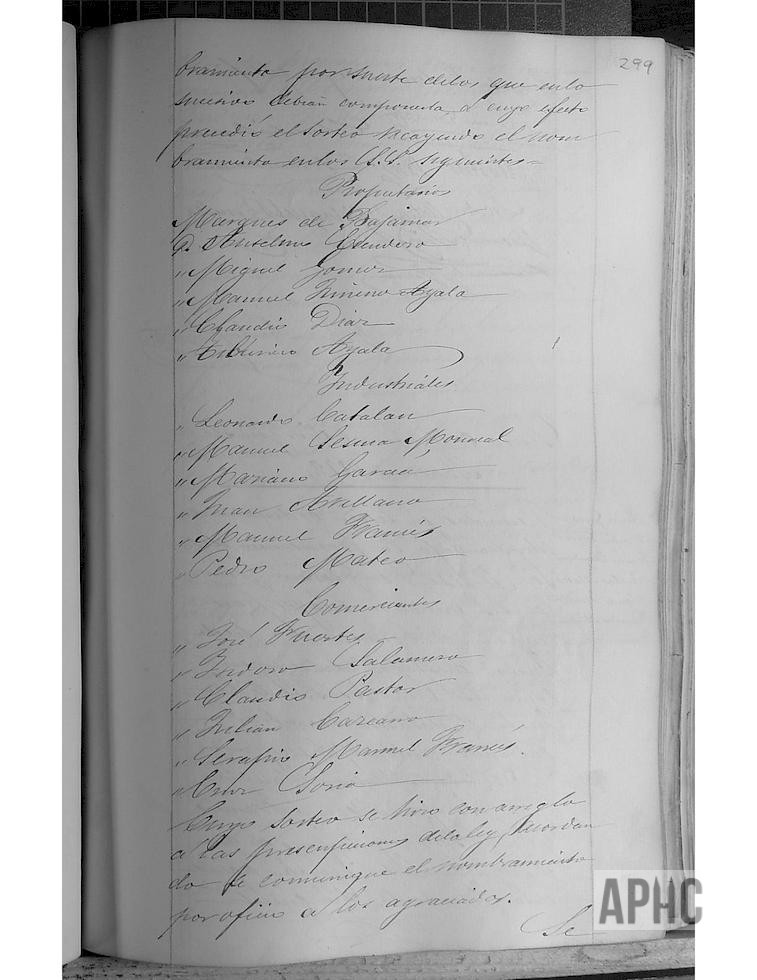 299
bramiento por suerte de los que en lo
sucesivo debian componerla, á cuyo efecto
precedió el sorteo recayendo el nom
bramiento en los S.S. siguientes =
Propietarios
Marques de Bajamar
D. Anselmo Escudero
" Miguel Gomez
" Manuel Ximeno Ayala
" Claudio Diaz
" Ayala
Industriales
" Leonardo Catalan
" Manuel Sesma Monreal
" Mariano Garcia
" Juan Arellano
" Manuel Francés
" Pedro Mateo
Comerciantes
" José Fuertes
" Isidoro Salamero
" Claudio Pastor
" Julian Carcano
" Serafin Manuel Francés.
" Cruz Soria
Cuyo sorteo se hizo con arreglo
á las prescripciones de la ley, acordan
do se comunique el nombramiento
por oficio á los agraciados.
Se
APHC